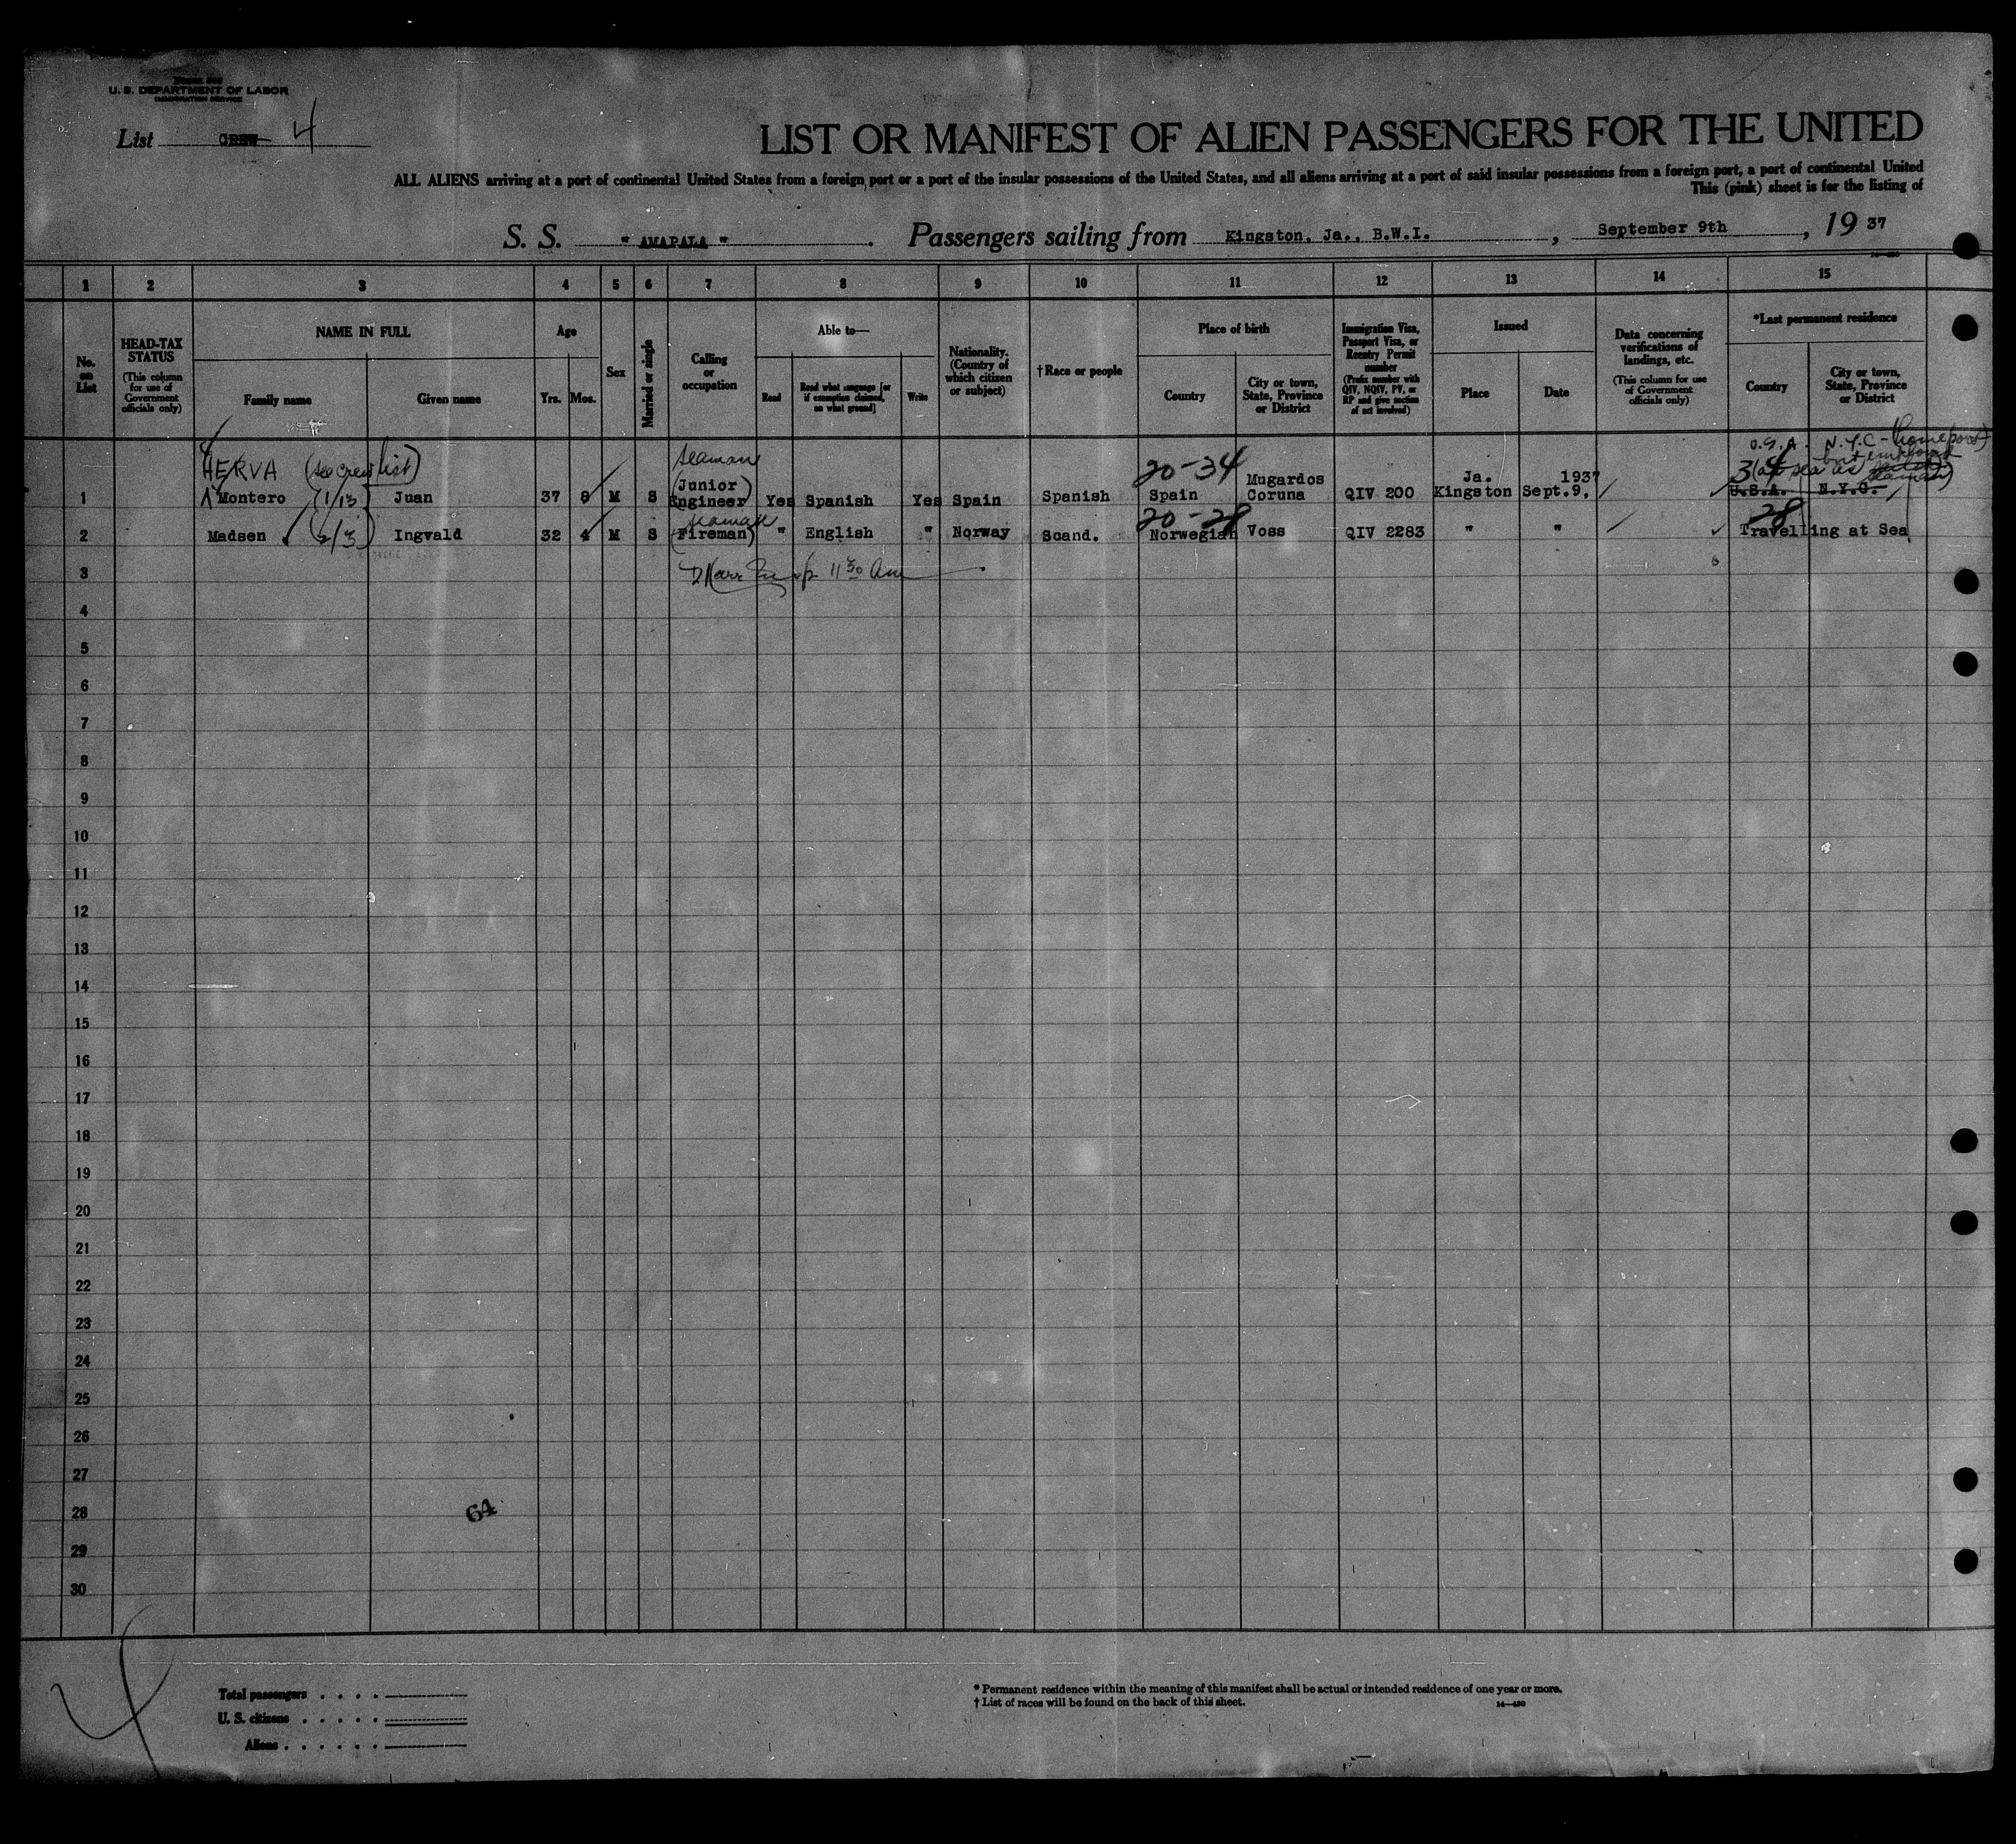 U. S. DEPARTMENT OF LABOR
IMMIGRATION SERVICE
List CREW 4
LIST OR MANIFEST OF ALIEN PASSENGERS FOR THE UNITED
ALL ALIENS arriving at a port of continental United States from a foreign port or a port of the insular possessions of the United States, and all aliens arriving at a port of said insular possessions from a foreign port, a port of continental United
This (pink) sheet is for the listing of
S. S. " AMAPALA " . Passengers sailing from Kingston, Ja., B.W.I. , September 9th , 19 37
1 2 3 4 5 6 7 8 9 10 11 12 13 14 15
No. on List
HEAD-TAX STATUS
(This column for use of Government officials only)
NAME IN FULL
Family name
Given name
Age
Yrs. Mos.
Sex
Married or single
Calling or occupation
Able to—
Read
Read what language [or if exemption claimed, on what ground]
Write
Nationality. (Country of which citizen or subject)
†Race or people
Place of birth
Country
City or town, State, Province or District
Immigration Visa, Passport Visa, or Reentry Permit number
(Prefix number with QIV, NQIV, PV, or RP and give section of act involved)
Issued
Place
Date
Data concerning verifications of landings, etc.
(This column for use of Government officials only)
*Last permanent residence
Country
City or town, State, Province or District
U.S.A. N.Y.C - (homeport)
but employed
HERVA (see crew list) seaman 20-34 34 (at sea as seaman)
1 Montero (1/13) Juan 37 8 M S (Junior) Engineer Yes Spanish Yes Spain Spanish Spain Mugardos Coruna QIV 200 Ja. Kingston Sept.9, 1937 U.S.A. N.Y.C.
seaman 20-28 28
2 Madsen (2/3) Ingvald 32 4 M S (Fireman) " English " Norway Scand. Norwegian Voss QIV 2283 " " Travelling at Sea
3 11 30 am
4
5
6
7
8
9
10
11
12
13
14
15
16
17
18
19
20
21
22
23
24
25
26
27
28
64
29
30
4
Total passengers . . . .
U. S. citizens . . . . .
Aliens . . . . . .
* Permanent residence within the meaning of this manifest shall be actual or intended residence of one year or more.
† List of races will be found on the back of this sheet.
14—430